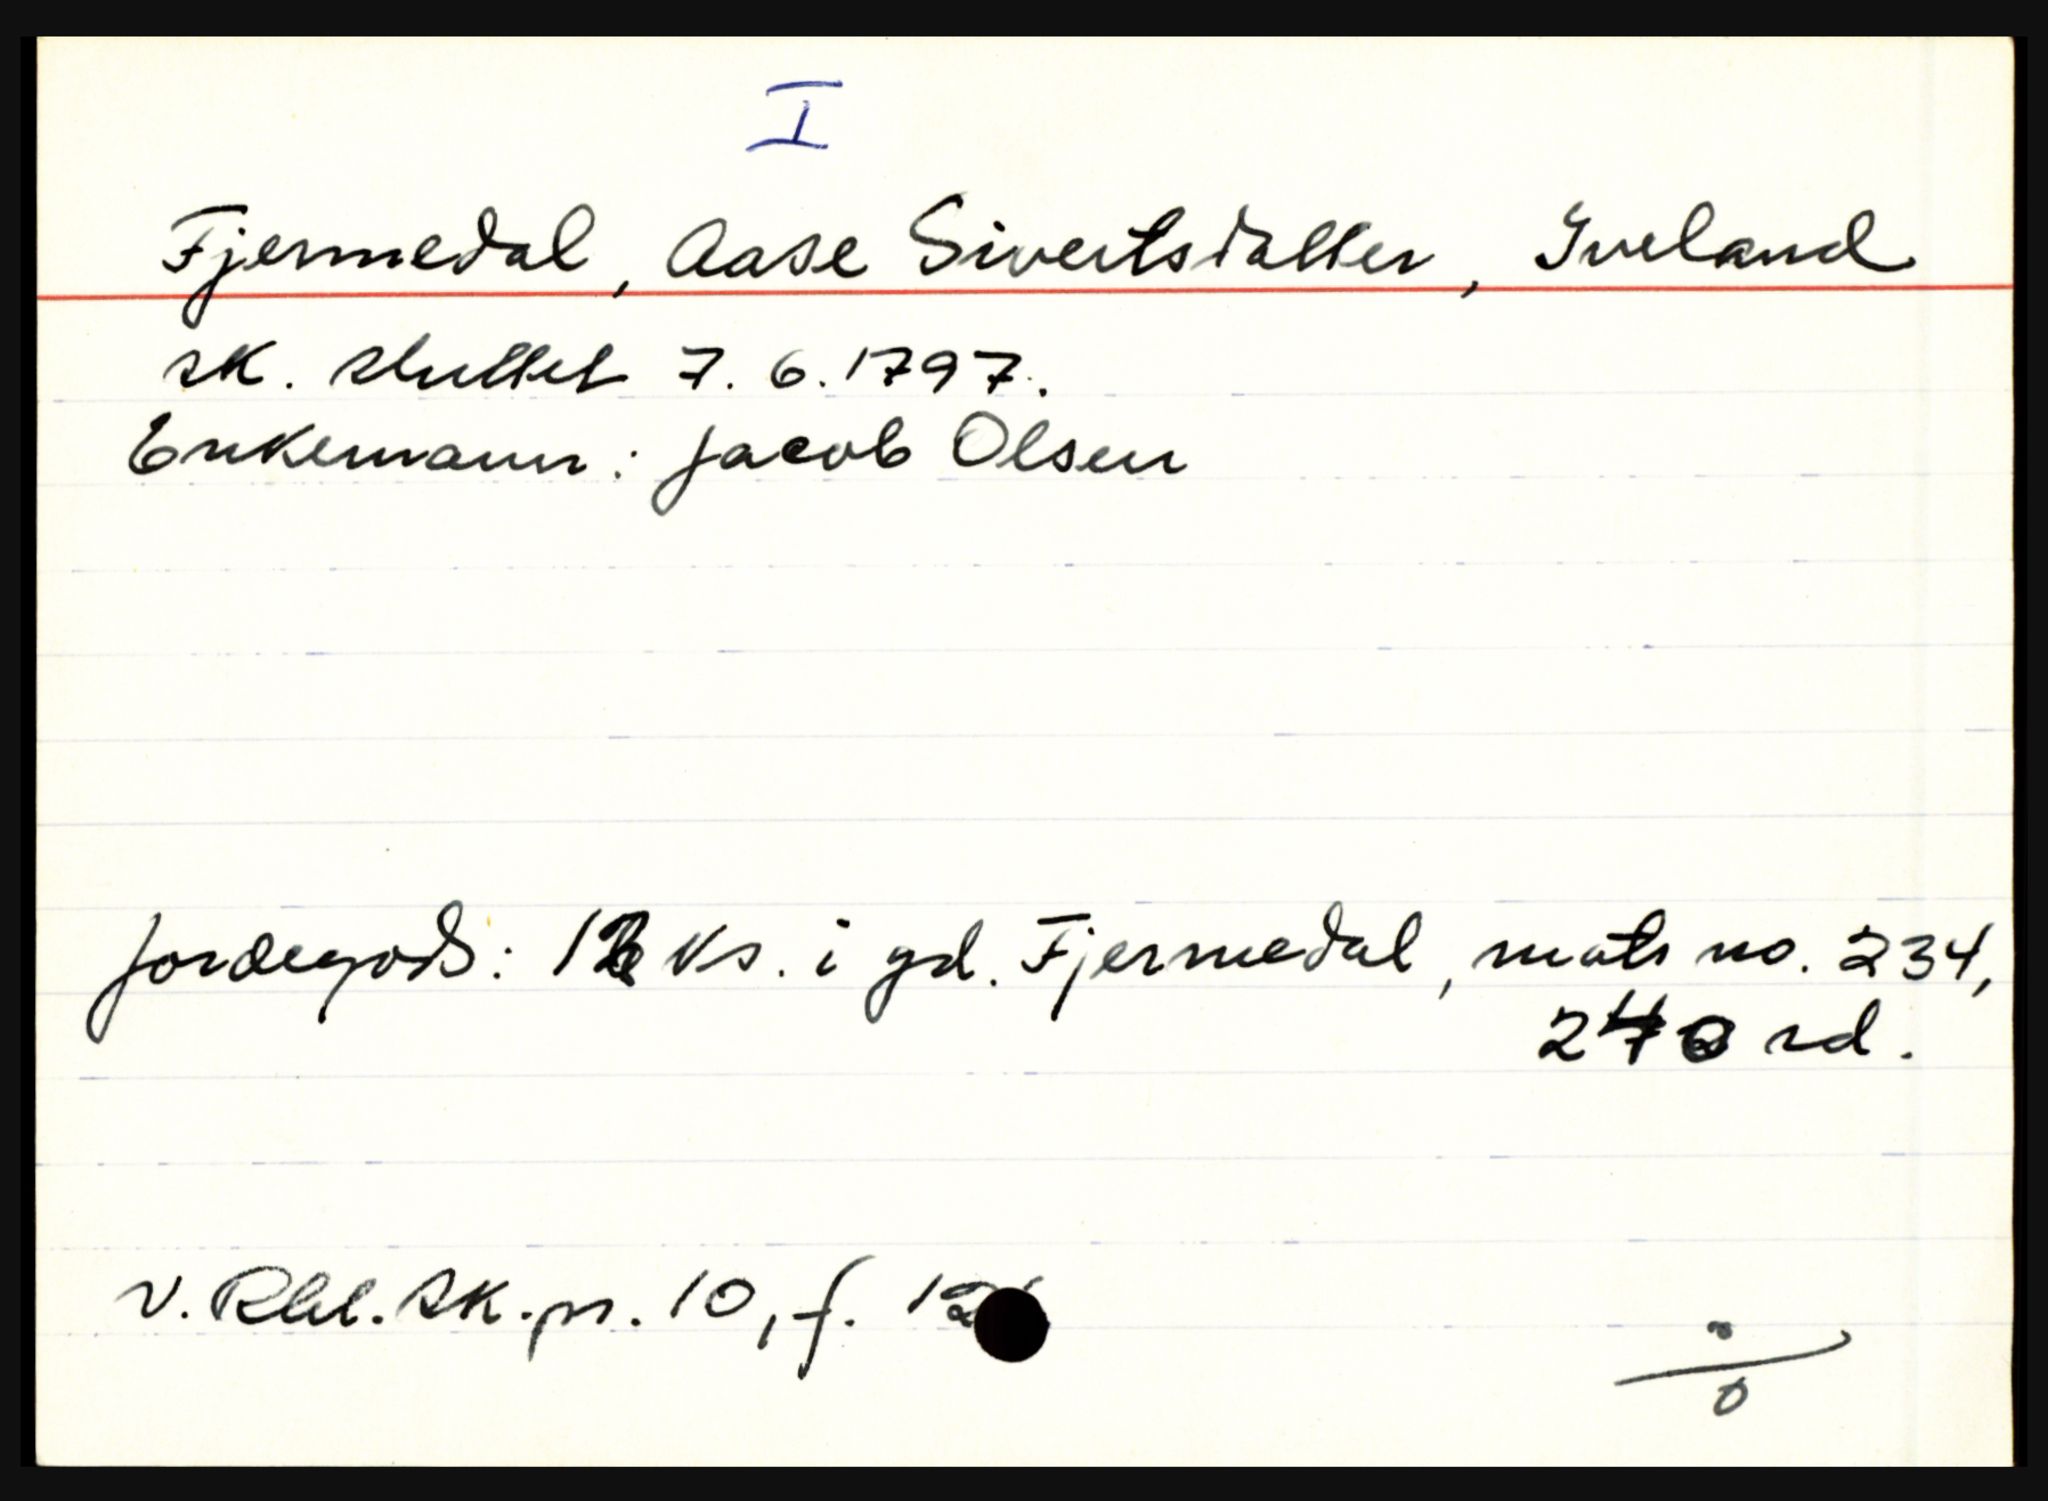 I
Fjermedal, Aase Sivertsdatter, Iveland
sk. sluttet 7.6.1797.
Enkemann: Jacob Olsen
Jordegods: ks. i gd. Fjermedal, matr no. 234,
rd.
v. Rbl. sk. pr. 10, f.